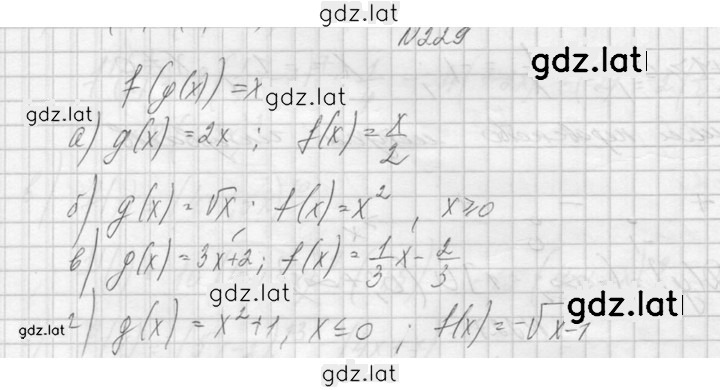 gdz.lat
N229
gdz.lat
f(g(x))=x
gdz.lat
gdz.lat
а) g(x)=2x; f(x)=x/2
б) g(x)=√x; f(x)=x², x≥0
в) g(x)=3x+2; f(x)=1/3x-2/3
gdz.lat
gdz.lat
gdz.lat
г) g(x)=x²+1, x≤0; f(x)=-√x-1
gdz.lat